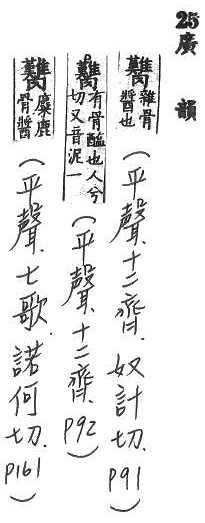 25 廣韻
臡 雜骨醬也 (平聲.十二齊.奴計切.P91)
臡 有骨醢也人兮切又音泥一 (平聲.十二齊.P92)
臡 麋鹿骨醬 (平聲.七歌.諾何切.P161)